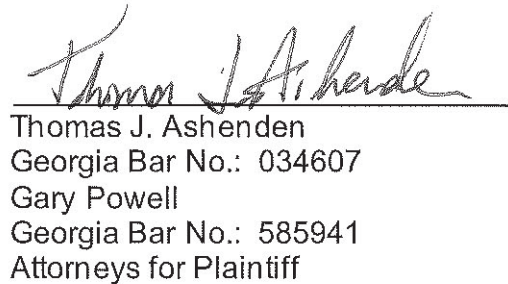 Thomas J. Ashenden
Thomas J. Ashenden
Georgia Bar No.: 034607
Gary Powell
Georgia Bar No.: 585941
Attorneys for Plaintiff